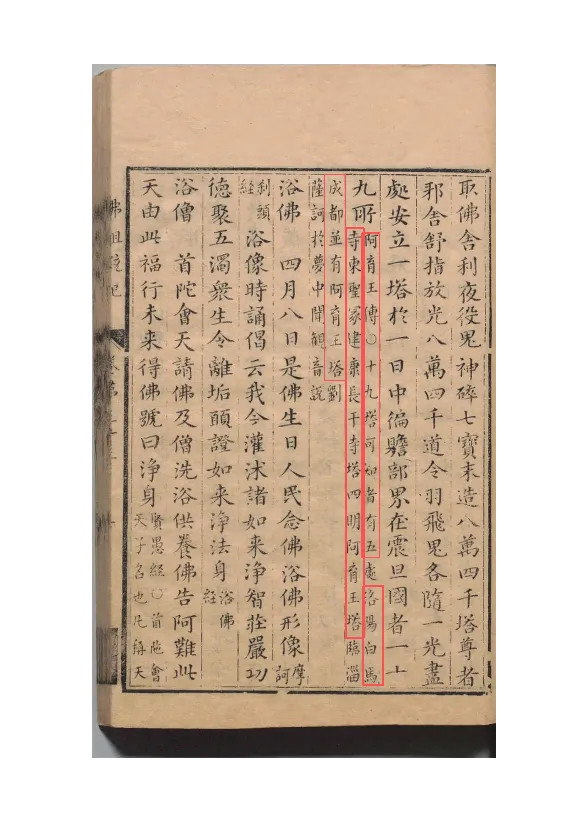 取佛舍利夜役鬼神碎七寶末造八萬四千塔尊者
邪舍舒指放光八萬四千道令羽飛鬼各隨一光盡
處安立一塔於一日中徧贍部界在震旦國者一十
九所
阿育王傳〇十九塔可知者有五處洛陽白馬
寺東聖冢建康長干寺塔四明阿育王塔臨淄
成都並有阿育王塔劉
薩訶於夢中聞觀音說
浴佛 四月八日是佛生日人民念佛浴佛形像摩訶
剎頭經 浴像時誦偈云我今灌沐諸如來淨智莊嚴功
德聚五濁衆生令離垢願證如來淨法身浴佛經
浴僧 首陀會天請佛及僧洗浴供養佛告阿難此
天由此福行未来得佛號曰淨身賢愚經〇首陀會
天子名也凡稱天
佛祖統紀
卷第三十三